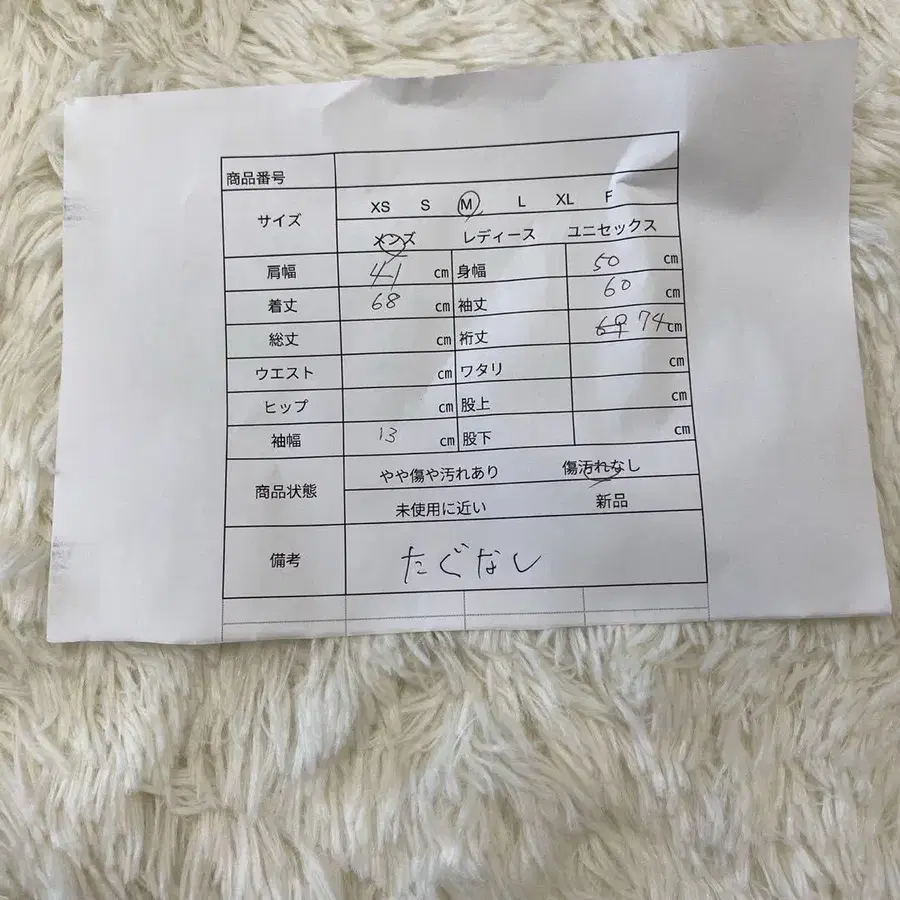 商品番号
サイズ XS S M L XL F
メンズ レディース ユニセックス
肩幅 41 cm 身幅 50 cm
着丈 68 cm 袖丈 60 cm
総丈 cm 裄丈 69 74 cm
ウエスト cm ワタリ cm
ヒップ cm 股上 cm
袖幅 13 cm 股下 cm
商品状態 やや傷や汚れあり 傷汚れなし
未使用に近い 新品
備考 たぐなし